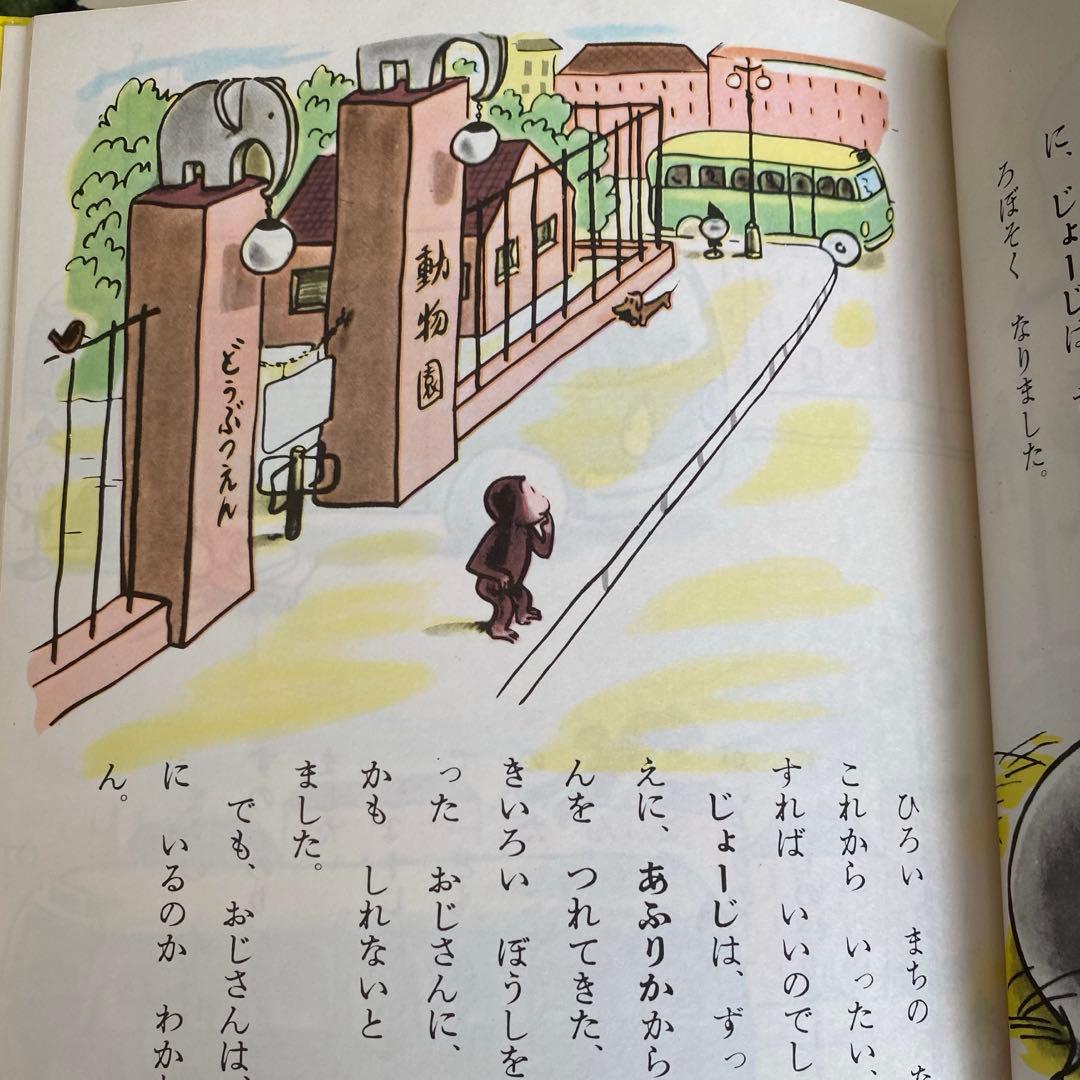 に、じょーじは
ろぼそく なりました。
動物園
どうぶつえん
ひろい まちの
これから いったい、
すれば いいのでし
じょーじは、ずっ
えに、あふりかから
んを つれてきた、
きいろい ぼうしを
った おじさんに、
かも しれないと
ました。
でも、おじさんは、
に いるのか わか
ん。